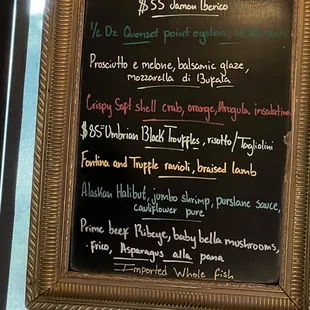 $55 Jamon Iberico
1/2 Dz Quonset point oysters,
Prosciutto e melone, balsamic glaze,
mozzarella di Bufala
Crispy Soft shell crab, orange, Arugula insalatina
$85 Umbrian Black Truffles, risotto/Tagliolini
Fontina and Truffle ravioli, braised lamb
Alaskan Halibut, jumbo shrimp, purslane sauce,
cauliflower puré
Prime beef Ribeye, baby bella mushrooms,
frico, Asparagus alla pana
Imported Whole fish